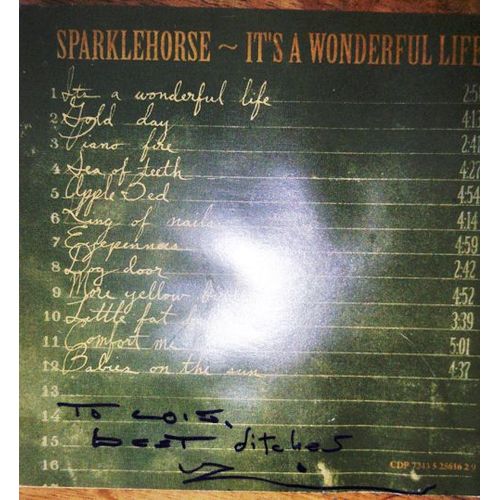 SPARKLEHORSE ~ IT'S A WONDERFUL LIFE
1 Its a wonderful life
2 Gold day 4:13
3 Piano fire
4 Sea of teeth 4:27
5 Apple Bed 4:54
6 King of nails 4:14
7 Eyepennies 4:59
8 Dog door 2:42
9 More yellow 4:52
10 Little fat 3:39
11 Comfort me 5:01
12 Babies on the sun 4:37
13
14 To Lois,
15 best ditches
CDP 7243 5 25616 2 9
16